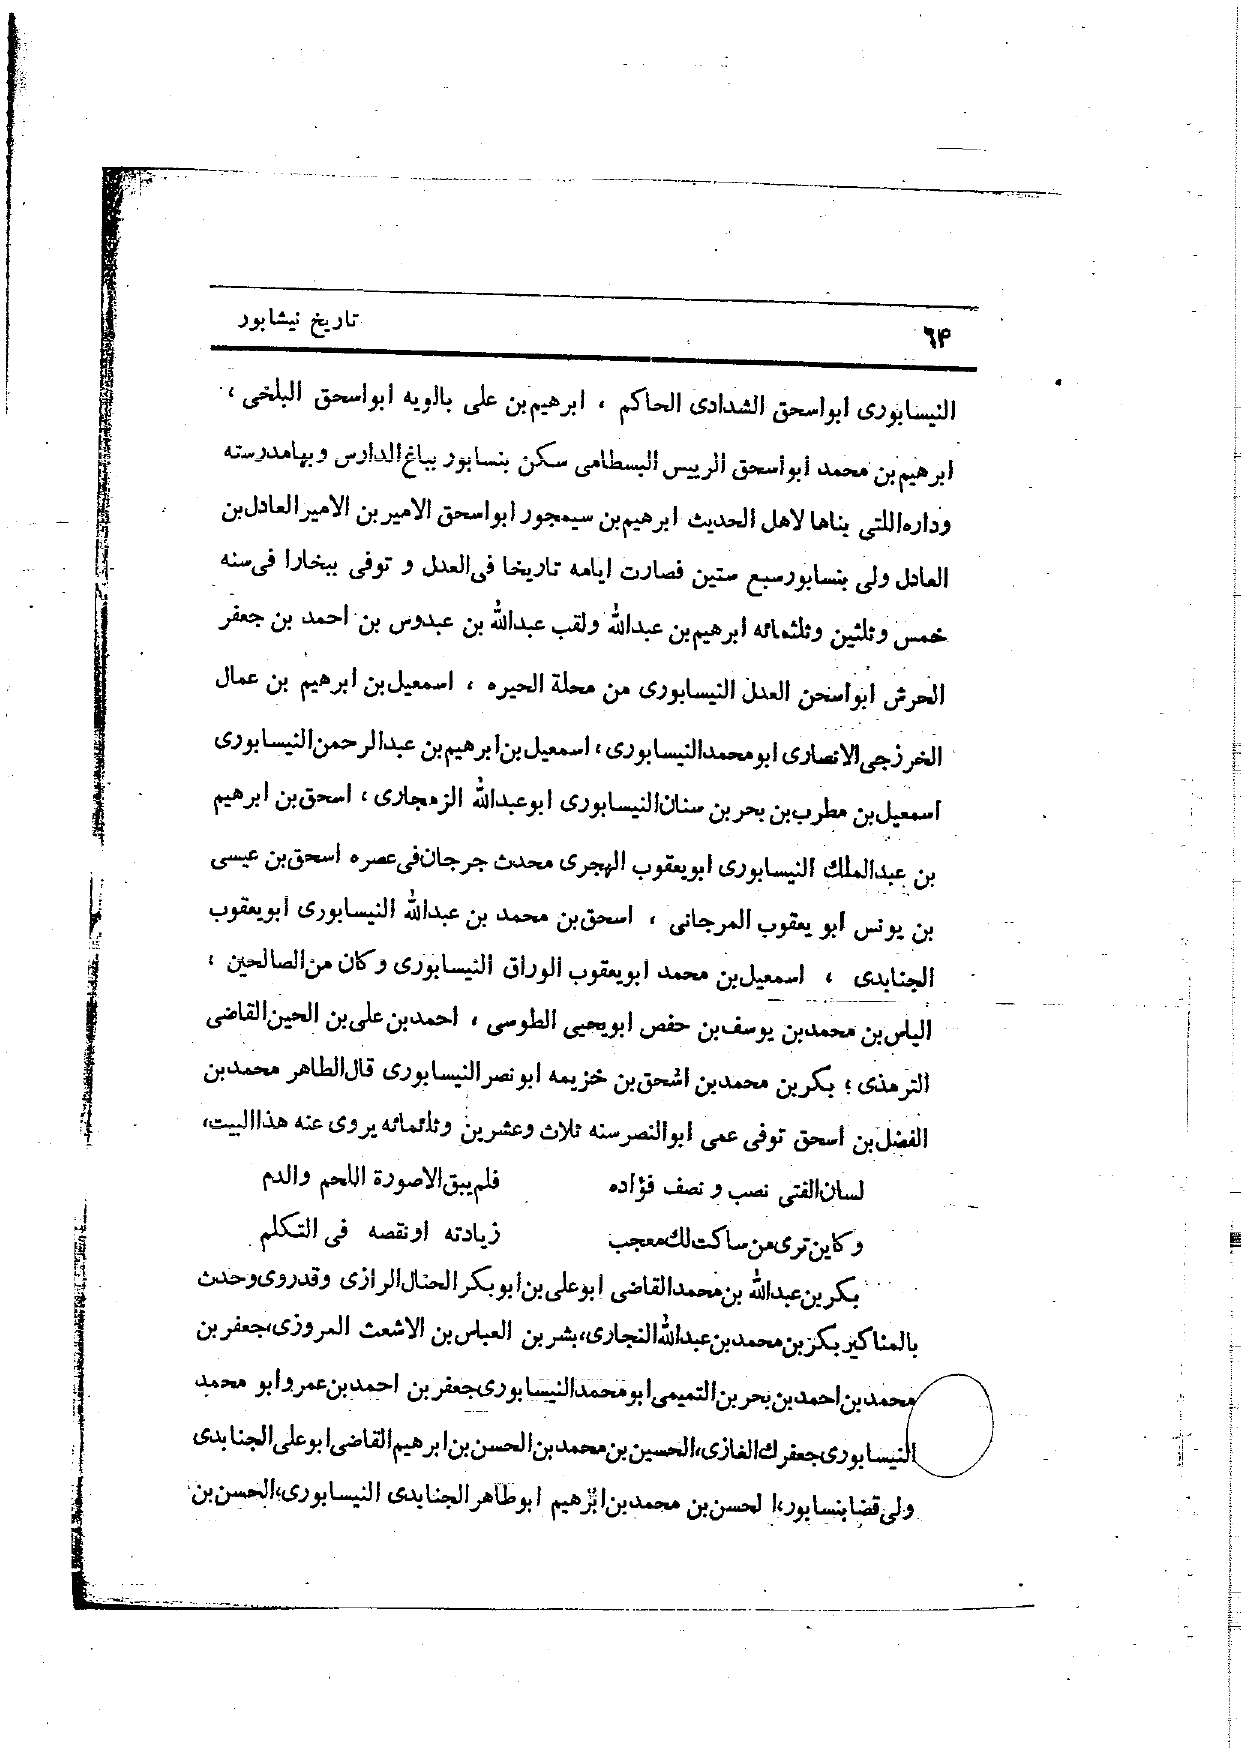 ۶۴
تاریخ نیشابور
النیسابوری ابواسحق الشدادی الحاکم ، ابرهیم‌بن علی بالویه ابواسحق البلخی ،
ابرهیم‌بن محمد ابواسحق الرییس البسطامی سکن بنسابور بباغ‌الدارس وبهامدرسته
وداره‌اللتی بناها لاهل الحدیث ابرهیم‌بن سیمجور ابواسحق الامیربن الامیرالعادل‌بن
العادل ولی بنسابورسبع ستین فصارت ایامه تاریخا فی‌العدل و توفی ببخارا فی‌سنه
خمس وثلثین وثلثمائه ابرهیم‌بن عبدالله ولقب عبدالله بن عبدوس بن احمد بن جعفر
الحرش ابواسحن العدل النیسابوری من محلة الحیره ، اسمعیل‌بن ابرهیم بن عمال
الخرزجی‌الانصاری ابومحمدالنیسابوری، اسمعیل‌بن‌ابرهیم‌بن عبدالرحمن‌النیسابوری
اسمعیل‌بن مطرب‌بن بحربن سنان‌النیسابوری ابوعبدالله الزمجاری ، اسحق‌بن ابرهیم
بن عبدالملك النیسابوری ابویعقوب الهجری محدث جرجان‌فی‌عصره اسحق‌بن عیسی
بن یونس ابو یعقوب المرجانی ، اسحق‌بن محمد بن عبدالله النیسابوری ابویعقوب
الجنابدی ، اسمعیل‌بن محمد ابویعقوب الوراق النیسابوری وکان من‌الصالحین ،
الیاس‌بن محمدبن یوسف‌بن حفص ابویحیی الطوسی ، احمدبن‌علی‌بن الحین‌القاضی
الترمذی ؛ بکربن محمدبن اشحق‌بن خزیمه ابونصرالنیسابوری قال‌الطاهر محمدبن
الفضل‌بن اسحق توفی عمی ابوالنصرسنه ثلاث وعشرین وثلثمائه یروی عنه هذاالبیت،
لسان‌الفتی نصب و نصف فؤاده فلم‌یبق‌الاصورة اللحم والدم
وکاین‌تری‌من‌ساکت‌لك‌معجب زیادته اونقصه فی التکلم
بکربن‌عبدالله بن‌محمدالقاضی ابوعلی‌بن‌ابوبکرالحنال‌الرازی وقدروی‌وحدث
بالمناکیر بکربن‌محمدبن‌عبدالله‌النجاری،بشربن العباس‌بن الاشعث المروزی،جعفربن
محمدبن‌احمدبن‌بحربن‌التمیمی‌ابومحمدالنیسابوری‌جعفربن احمدبن‌عمروابو محمد
النیسابوری‌جعفرك‌الغازی،الحسین‌بن‌محمدبن‌الحسن‌بن‌ابرهیم‌القاضی‌ابوعلی‌الجنابدی
ولی‌قضابنسابور،ا لحسن‌بن محمدبن‌ابرهیم ابوطاهرالجنابدی النیسابوری،الحسن‌بن